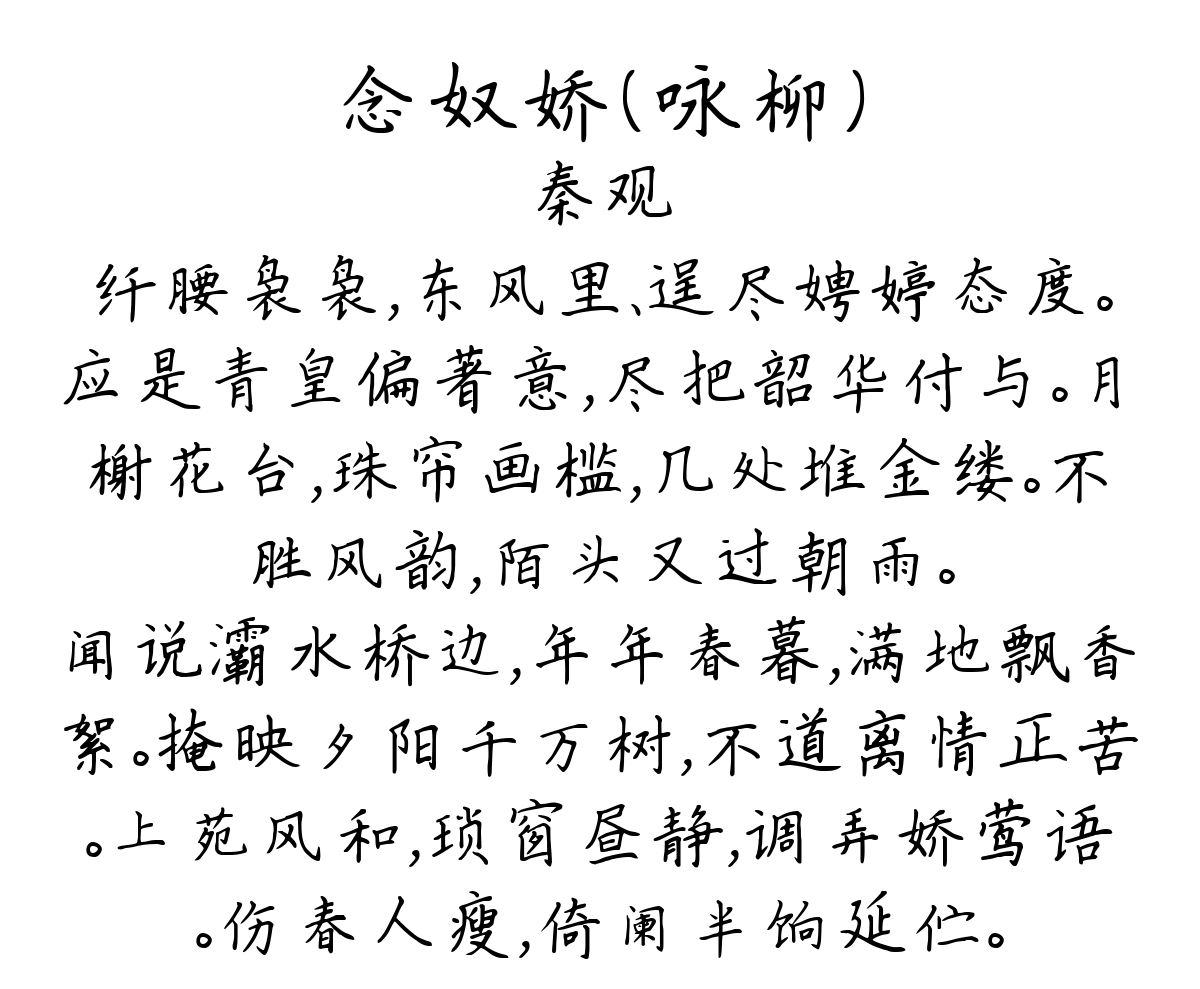 念奴娇(咏柳)
秦观
纤腰袅袅,东风里、逞尽娉婷态度。
应是青皇偏著意,尽把韶华付与。月
榭花台,珠帘画槛,几处堆金缕。不
胜风韵,陌头又过朝雨。
闻说灞水桥边,年年春暮,满地飘香
絮。掩映夕阳千万树,不道离情正苦
。上苑风和,琐窗昼静,调弄娇莺语
。伤春人瘦,倚阑半饷延伫。